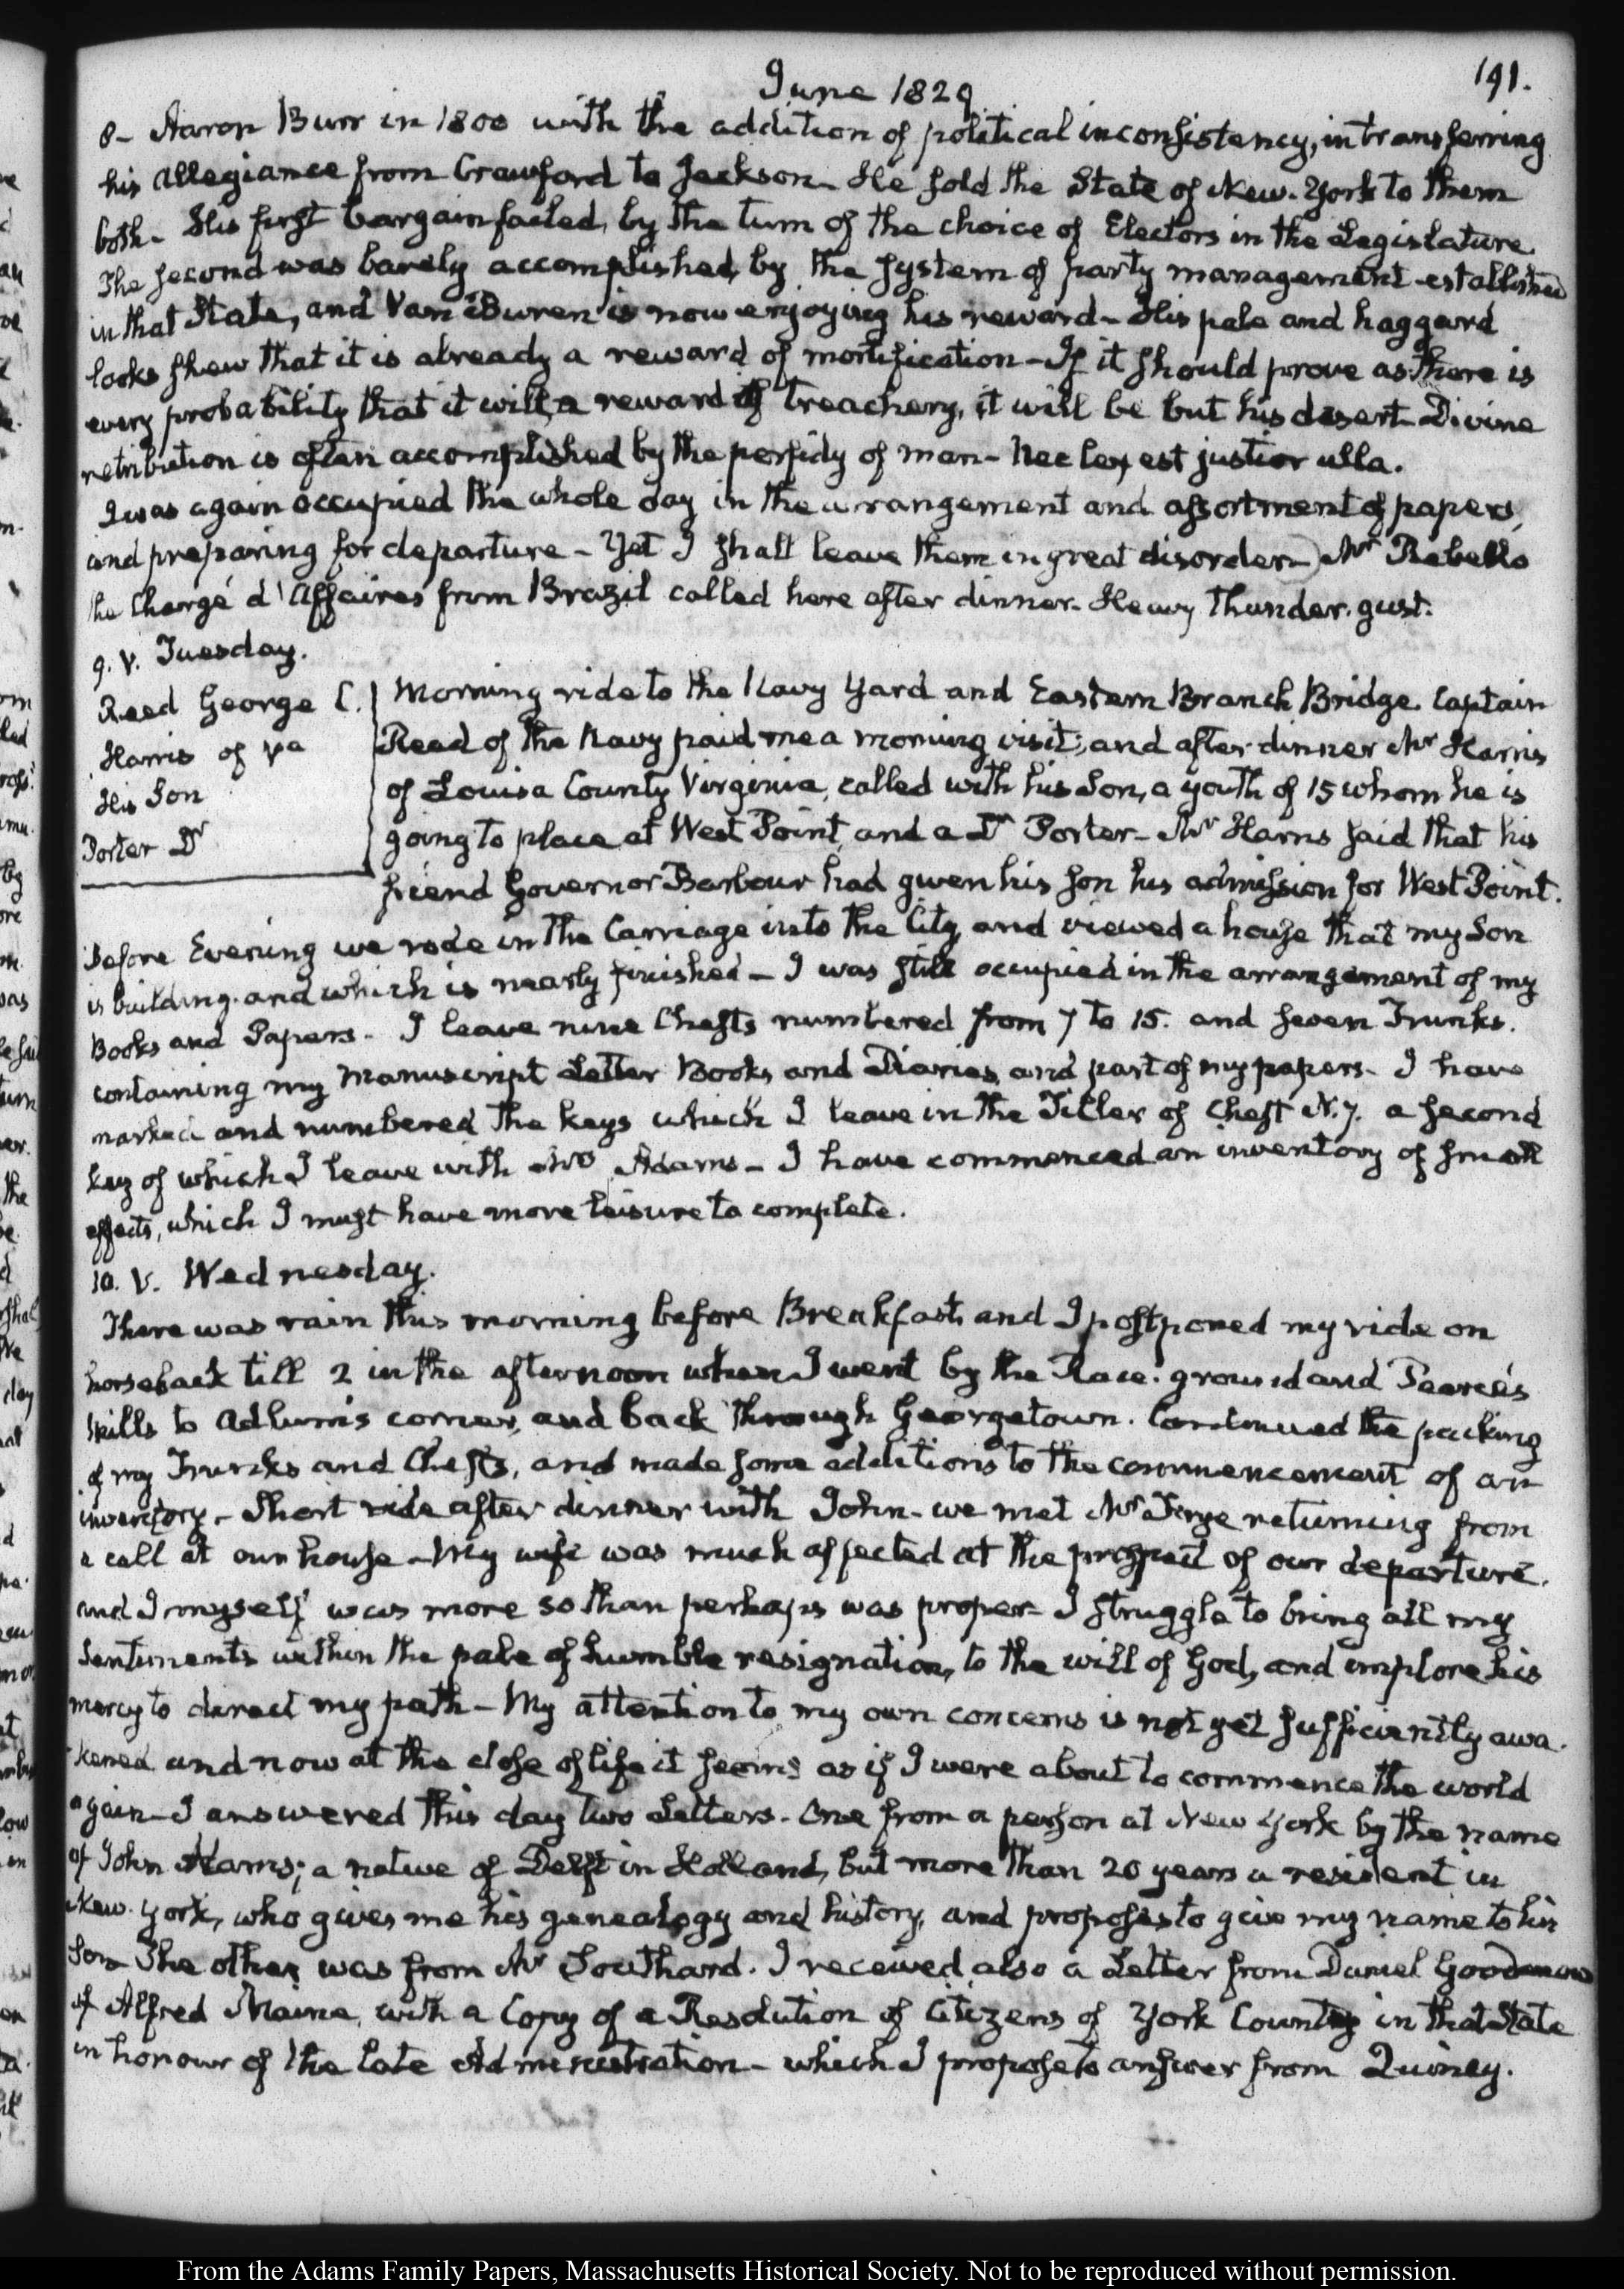 June 1829
191.
8- Aaron Burr in 1800 with the addition of political inconsistency, in transferring
his allegiance from Crawford to Jackson- He sold the State of New-York to them
both- His first bargain failed, by the turn of the choice of Electors in the Legislature.
The second was barely accomplished, by the system of party management established
in that State, and Van Buren is now enjoying his reward- His pale and haggard
looks shew that it is already a reward of mortification- If it should prove as there is
every probability that it will, a reward of treachery, it will be but his desert- Divine
retribution is often accomplished by the perfidy of man- Nec lex est justior ulla.
I was again occupied the whole day in the arrangement and assortment of papers,
and preparing for departure- Yet I shall leave them in great disorder- Mr Rebello
the Chargé d'Affaires from Brazil called here after dinner- Heavy Thunder-gust.
9. V. Tuesday.
Reed George C.
Harris of Va
His Son
Porter Dr
Morning ride to the Navy Yard and Eastern Branch Bridge. Captain
Read of the Navy paid me a morning visit; and after dinner Mr Harris
of Louisa County Virginia, called with his Son, a youth of 15 whom he is
going to place at West Point, and a Dr Porter- Mr Harris said that his
friend Governor Barbour had given his son his admission for West Point.
Before Evening we rode in the Carriage into the City and viewed a house that my Son
is building and which is nearly finished- I was still occupied in the arrangement of my
Books and Papers- I leave nine Chests numbered from 7 to 15. and seven Trunks.
containing my Manuscript Letter Books and Diaries, and part of my papers- I have
marked and numbered the keys which I leave in the Tiller of Chest N. 7. a second
key of which I leave with Mrs Adams- I have commenced an inventory of small
effects, which I must have more leisure to complete.
10. V. Wednesday.
There was rain this morning before Breakfast, and I postponed my ride on
horseback till 2 in the afternoon when I went by the Race-ground and Pearce's
Mills to Adlum's corner, and back through Georgetown. Continued the packing
of my Trunks and Chests, and made some additions to the commencement of an
inventory- Short ride after dinner with John- we met Mr Frye returning from
a call at our house- My wife was much affected at the prospect of our departure.
and I myself was more so than perhaps was proper- I struggle to bring all my
Sentiments within the pale of humble resignation, to the will of God, and implore his
mercy to direct my path- My attention to my own concerns is not yet sufficiently awa-
kened and now at the close of life it seems as if I were about to commence the world
again- I answered this day two Letters- One from a person at New York by the name
of John Adams; a native of Delft in Holland, but more than 20 years a resident in
New-York, who gives me his genealogy and history, and proposes to give my name to his
Son- The other was from Mr Southard. I received also a Letter from Daniel Goodenow
of Alfred Maine, with a Copy of a Resolution of Citizens of York County in that State
in honour of the late Administration- which I propose to answer from Quincy.
From the Adams Family Papers, Massachusetts Historical Society. Not to be reproduced without permission.